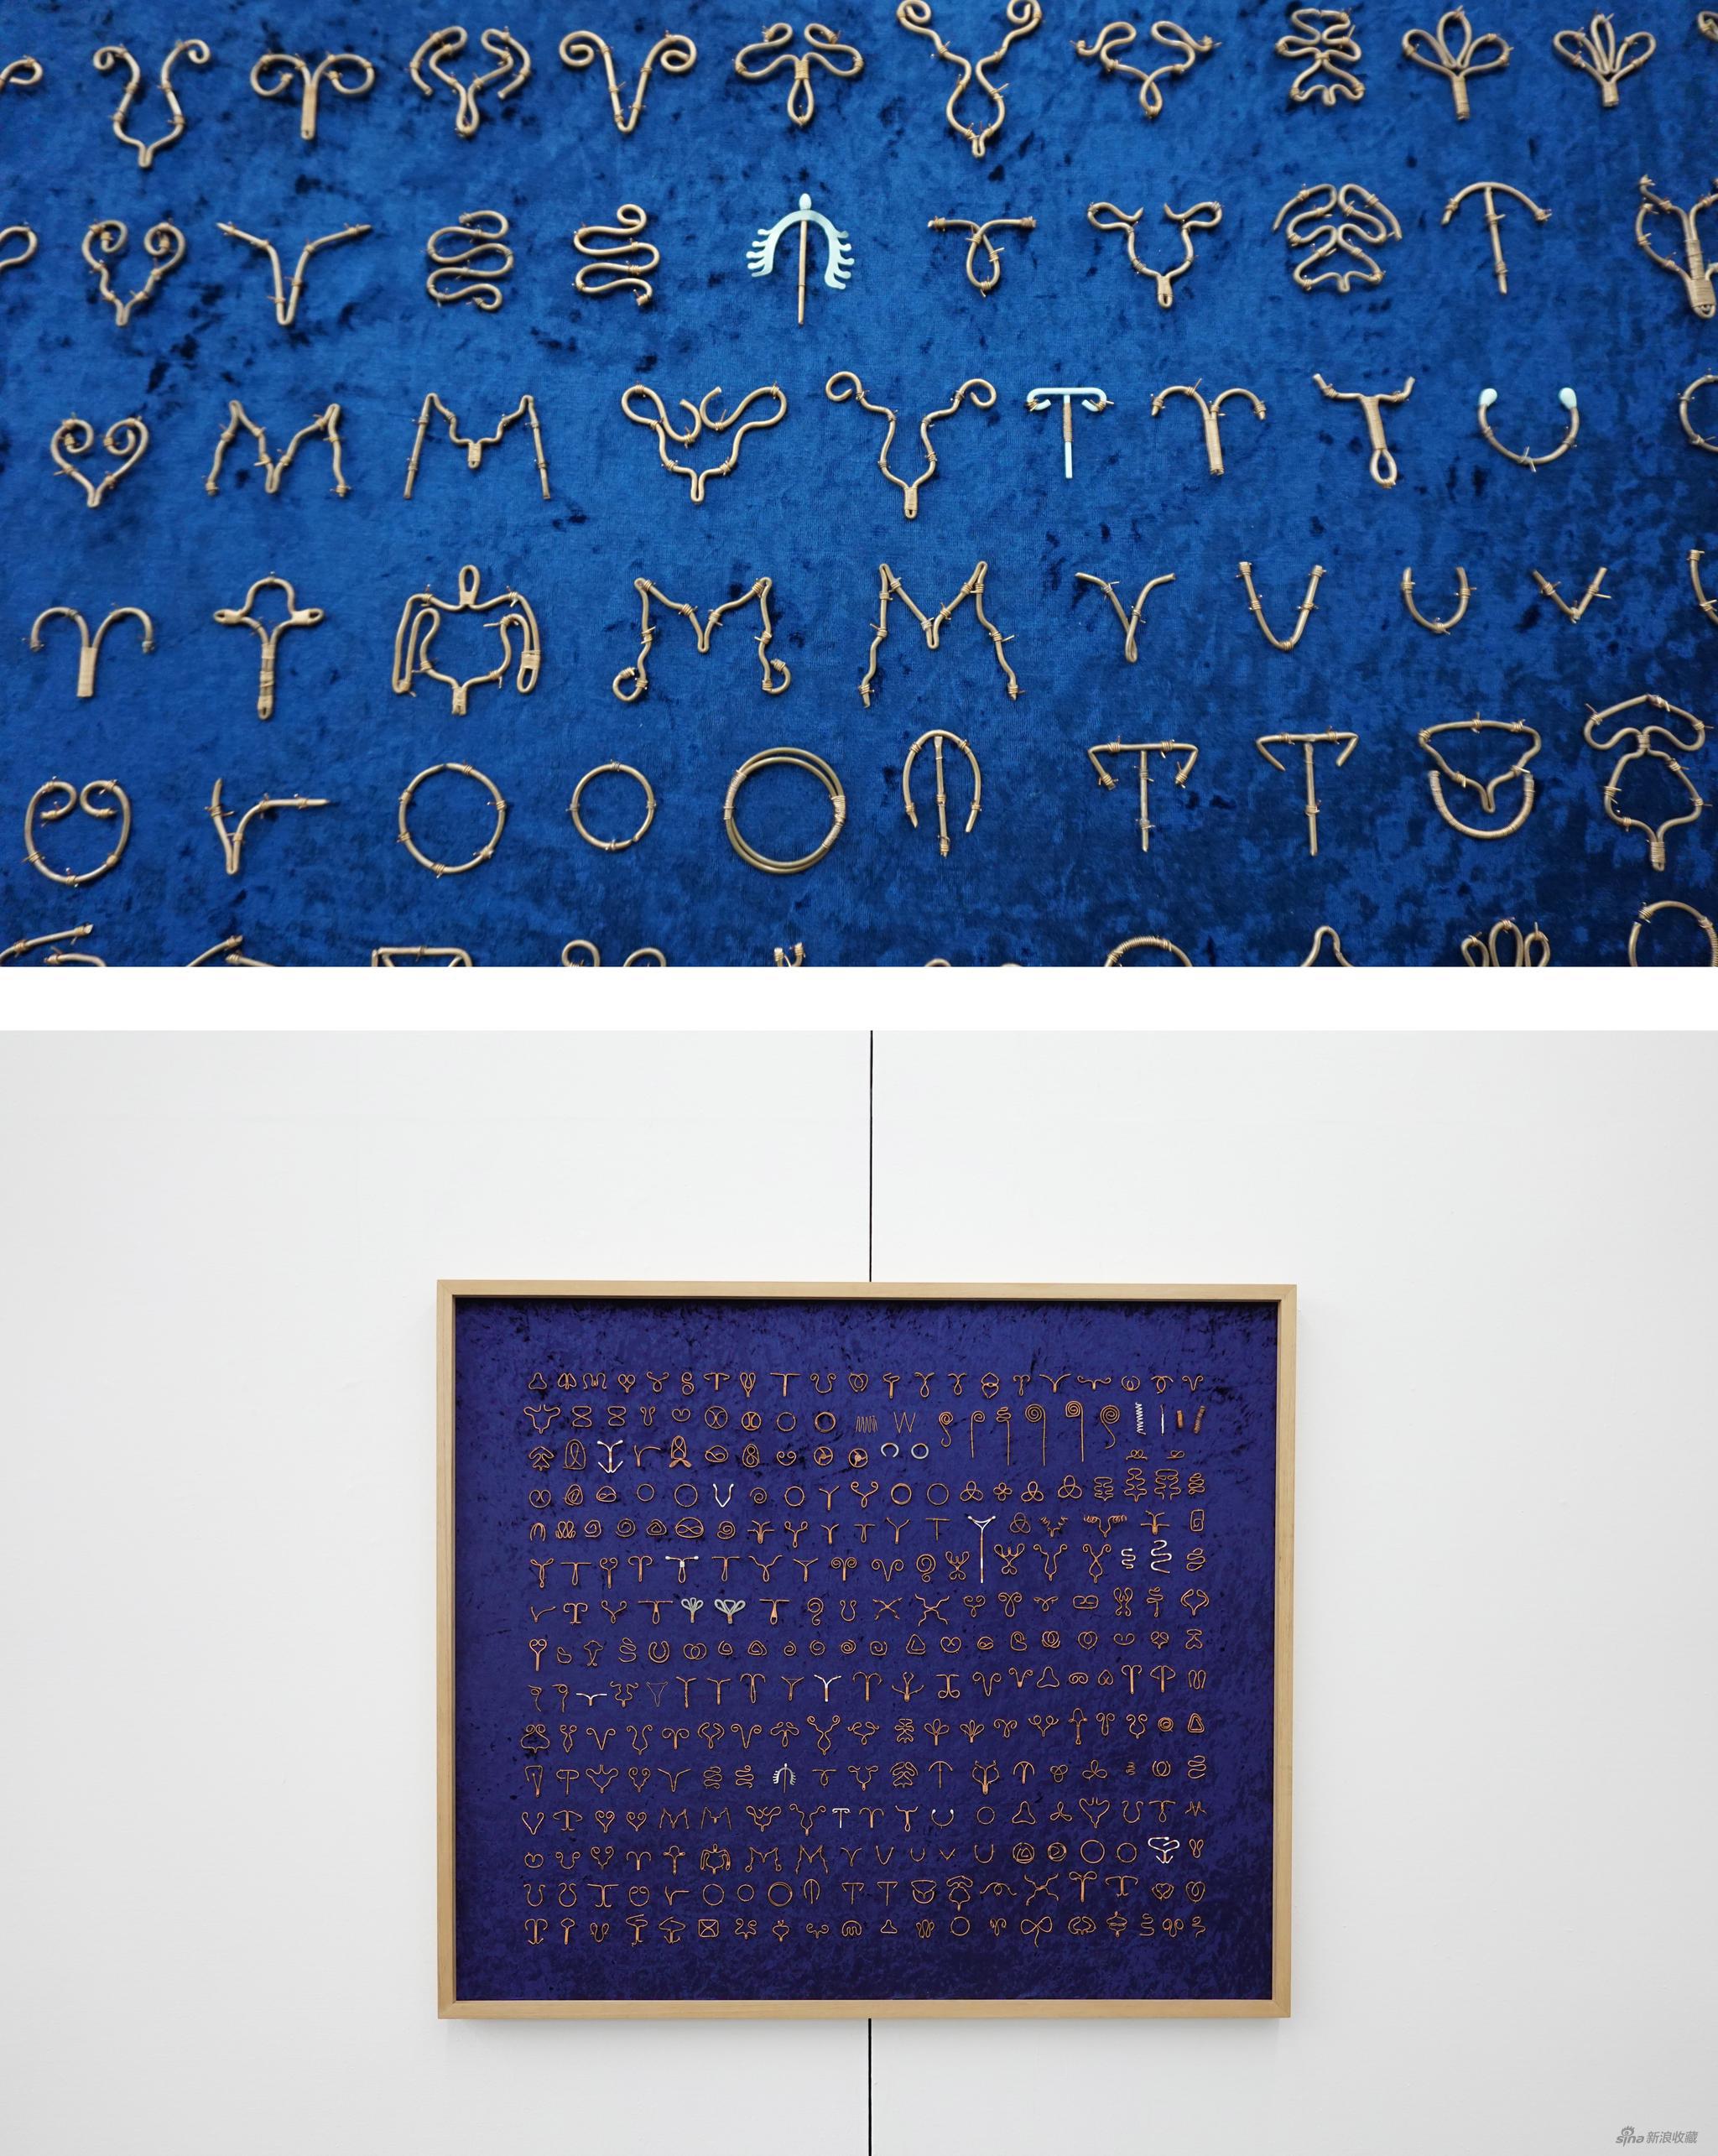 sina新浪收藏